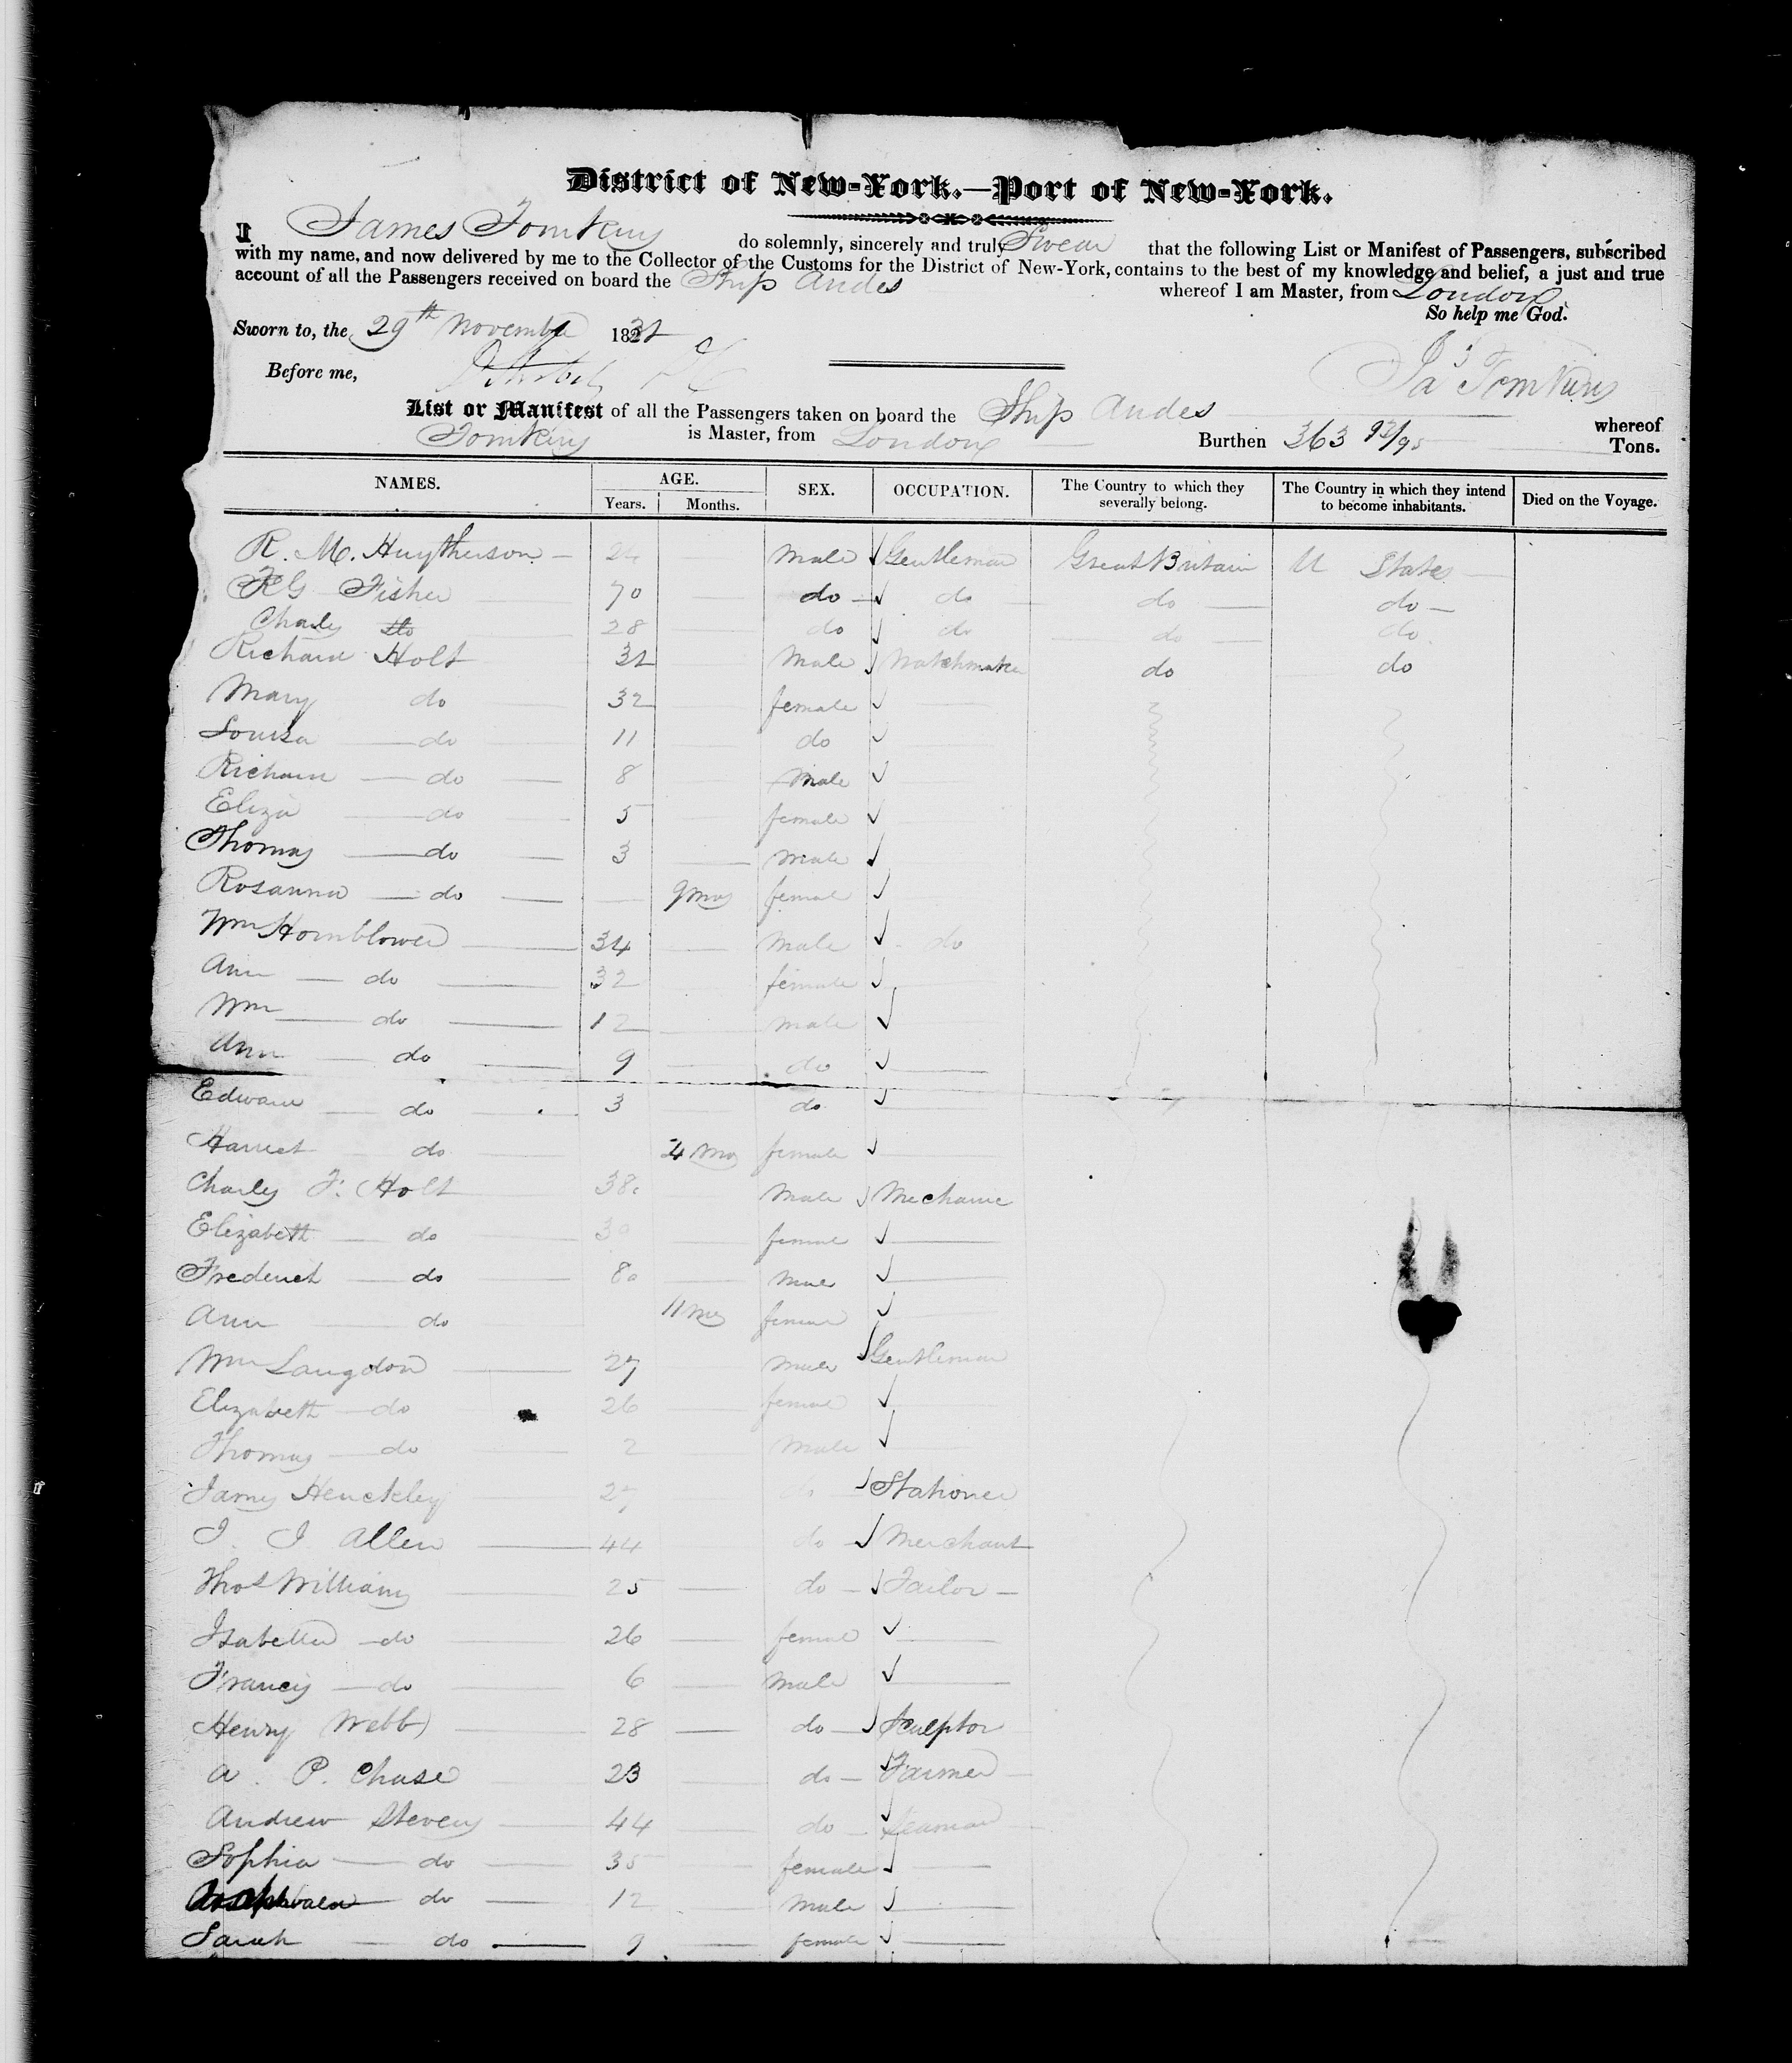 District of New-York.—Port of New-York.
I James Tomkins do solemnly, sincerely and truly Swear that the following List or Manifest of Passengers, subscribed
with my name, and now delivered by me to the Collector of the Customs for the District of New-York, contains to the best of my knowledge and belief, a just and true
account of all the Passengers received on board the Ship Andes whereof I am Master, from London
So help me God.
Sworn to, the 29th November 1832
Before me,
Jas Tomkins
List or Manifest of all the Passengers taken on board the Ship Andes whereof
Tomkins is Master, from London Burthen 363 93/95 Tons.
NAMES. AGE. SEX. OCCUPATION. The Country to which they severally belong. The Country in which they intend to become inhabitants. Died on the Voyage.
Years. Months.
R. M. 24 Male Gentleman Great Britain U States
Fisher 70 do do do do
Charles do 28 do do do do
Richard Holt 32 Male Watchmaker do do
Mary do 32 female
Louisa do 11 do
Richard do 8 Male
Eliza do 5 female
Thomas do 3 Male
Rosanna do 9 mos female
Wm Hornblower 34 Male do
Ann do 32 female
Wm do 12 male
Ann do 9 do
Edward do 3 do
Harriet do 4 mos female
Charles F. Holt 38 Male Mechanic
Elizabeth do 30 female
Frederick do 8 Male
Ann do 11 mos female
Wm Langdon 27 Male Gentleman
Elizabeth do 26 female
Thomas do 2 Male
James Henckley 27 do Stationer
J. J. Allen 44 do Merchant
Thos Williams 25 do Tailor
Isabella do 26 female
Francis do 6 male
Henry Webb 28 do Sculptor
A. P. Chase 23 do Farmer
Andrew Stevens 44 do Seaman
Sophia do 35 female
do 12 Male
Sarah do 9 female